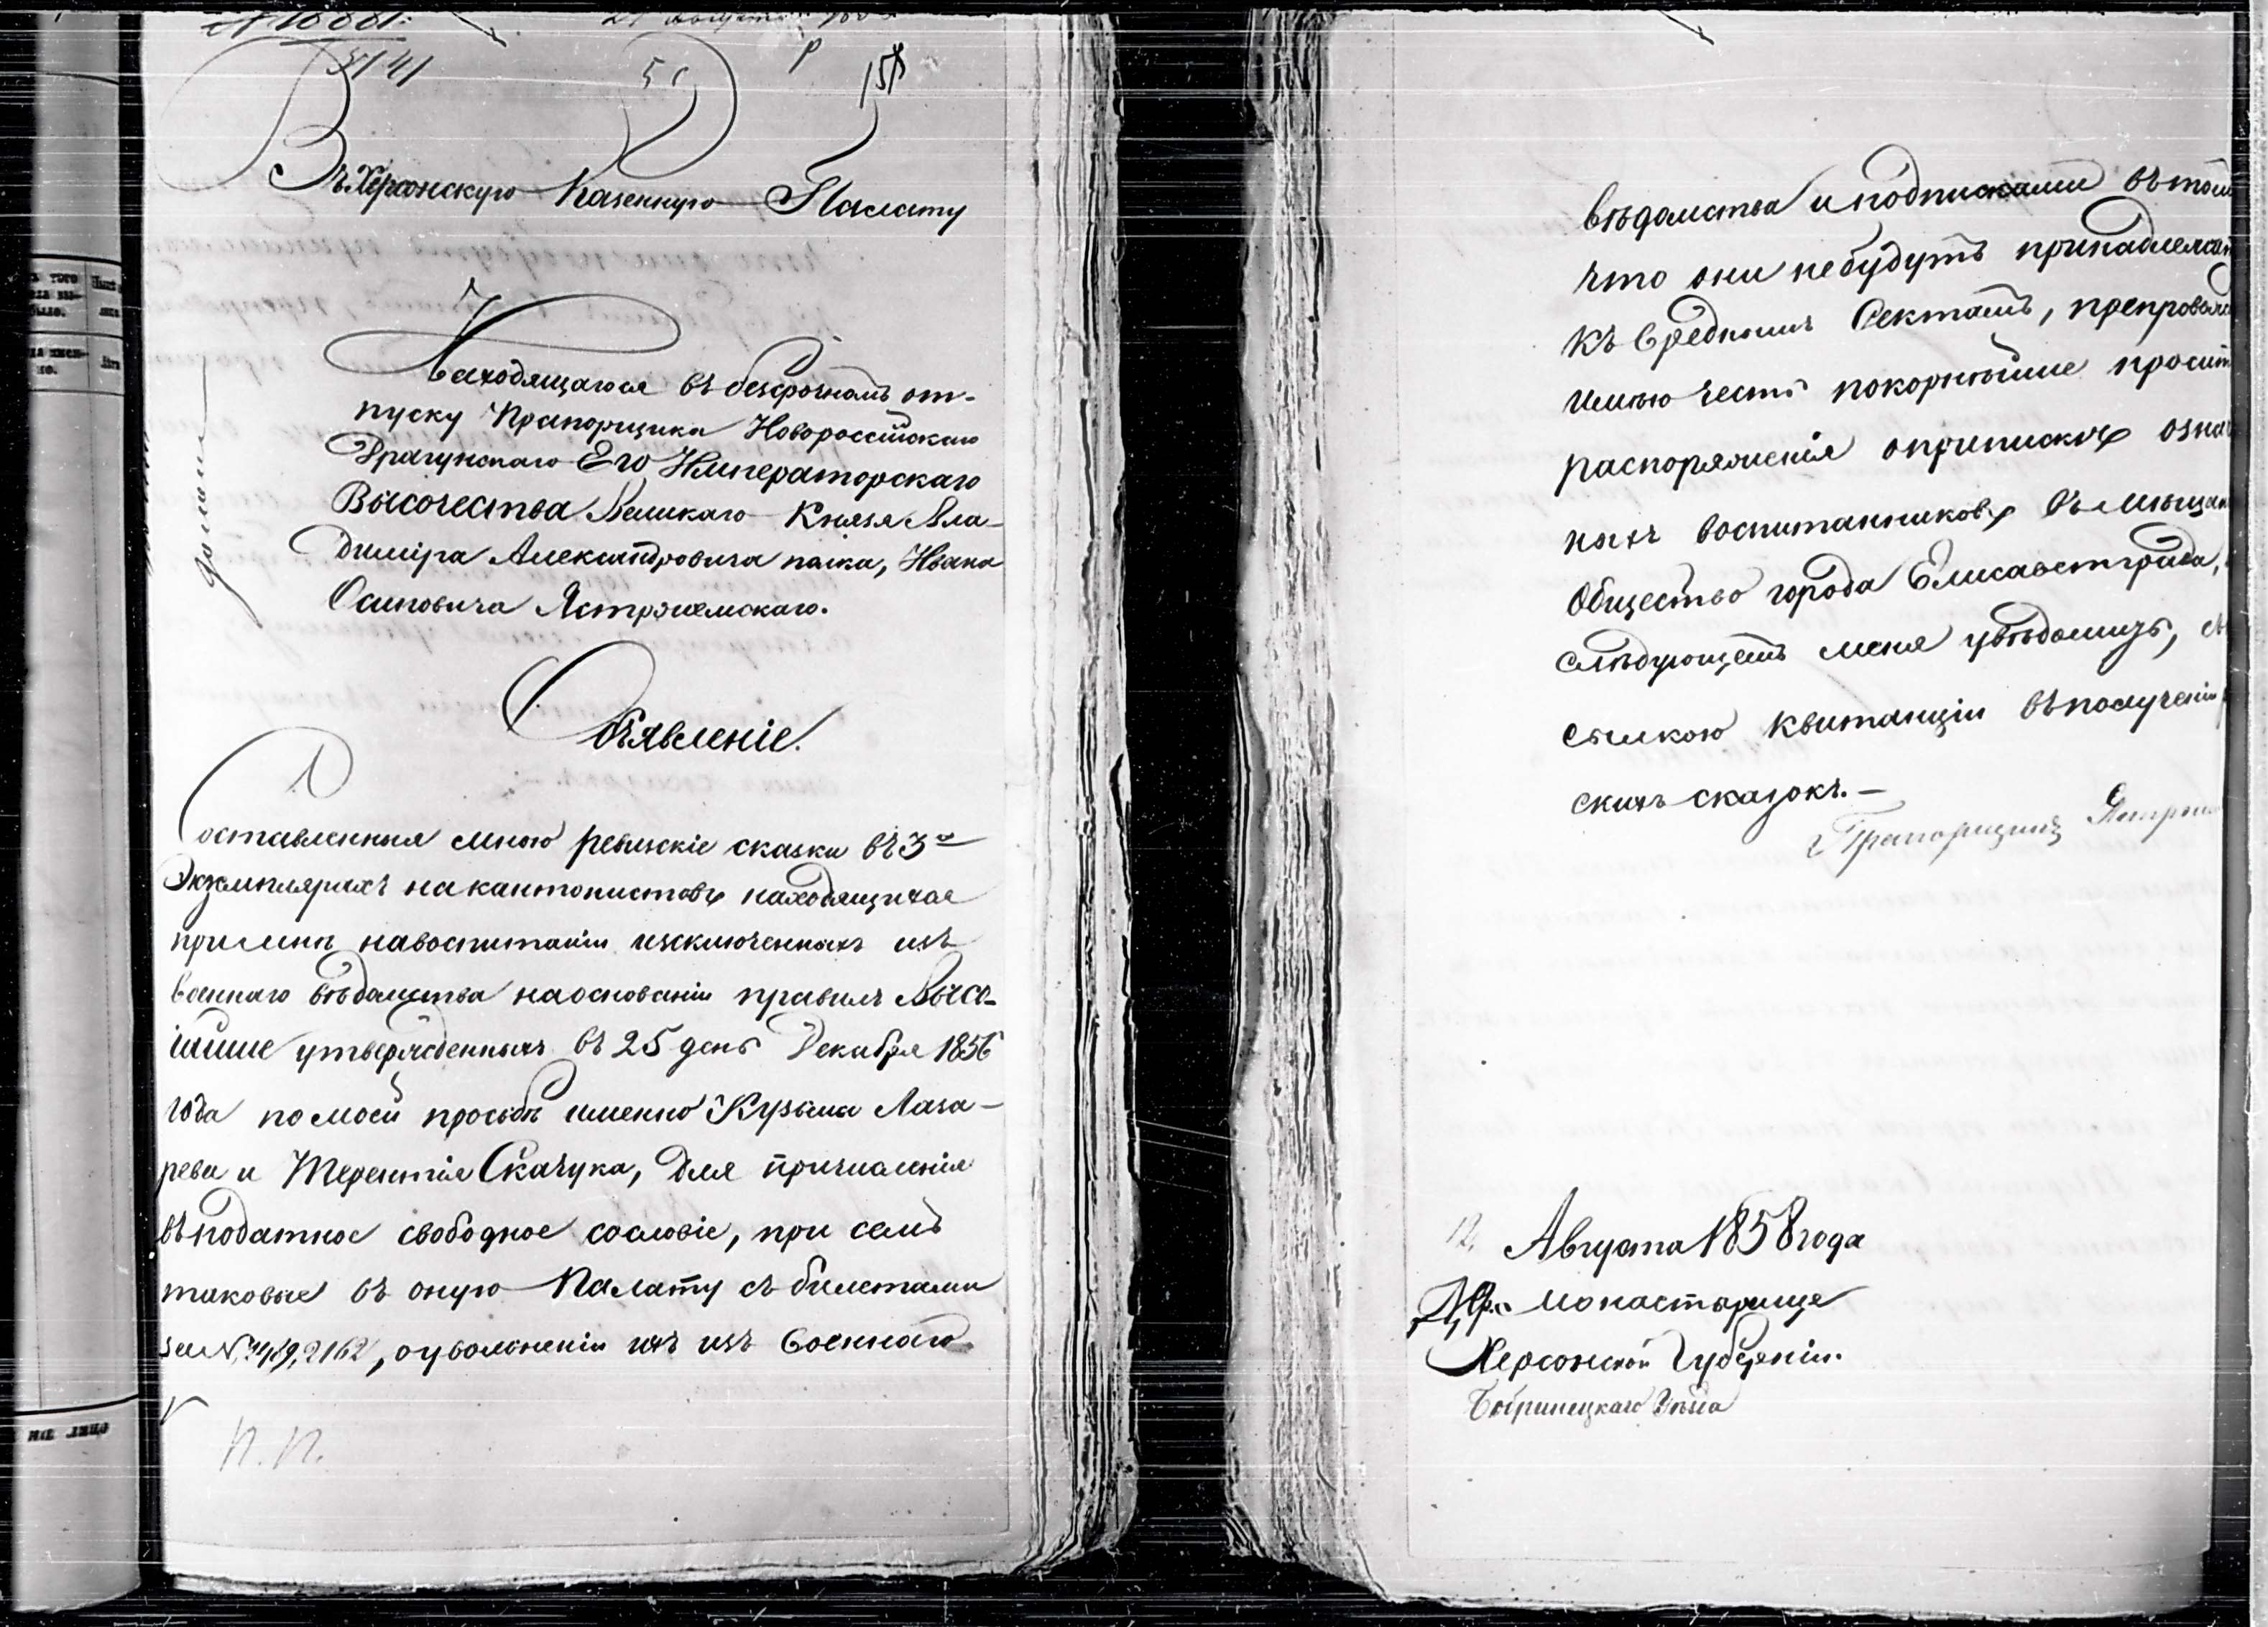 3141
Въ Херсонскую Казенную Палату
Находящагося въ безсрочномъ от-
пуску Прапорщика Новороссійскаго
Драгунскаго Его Императорскаго
Высочества Великаго Князя Вла-
диміра Александровича полка, Ивана
Осиповича Ястржемскаго.
Объявленіе.
Составленныя мною ревизскіе сказки въ 3х
Экземплярахъ на кантонистовъ находящихся
при мнѣ на воспитаніи изключенныхъ изъ
военнаго вѣдомства на основаніи правилъ Высо-
чайше утвержденныхъ въ 25 день Декабря 1856
года по моей просьбѣ именно Кузьма Лаза-
рева и Терентія Скачука, для причисленія
въ податное свободное сословіе, при семъ
таковые въ оную Палату съ билетами
за №, 2162, о увольненіи ихъ изъ военнаго
П.П.
вѣдомства и подписками въ том
что они не будутъ принадлежат
къ вреднымъ Сектамъ, препровожд
имѣю честь покорнѣйше просит
распоряженія о припискѣ озна
ныхъ воспитанниковъ въ мѣщан
Общество города Елисаветграда,
слѣдующемъ меня увѣдомить, съ
сылкою квитанціи въ полученіи
скихъ сказокъ.—
Прапорщикъ Ястрже
12. Августа 1858 года
Дер. Монастырище
Херсонской Губерніи.
Бобринецкаго Уѣзда